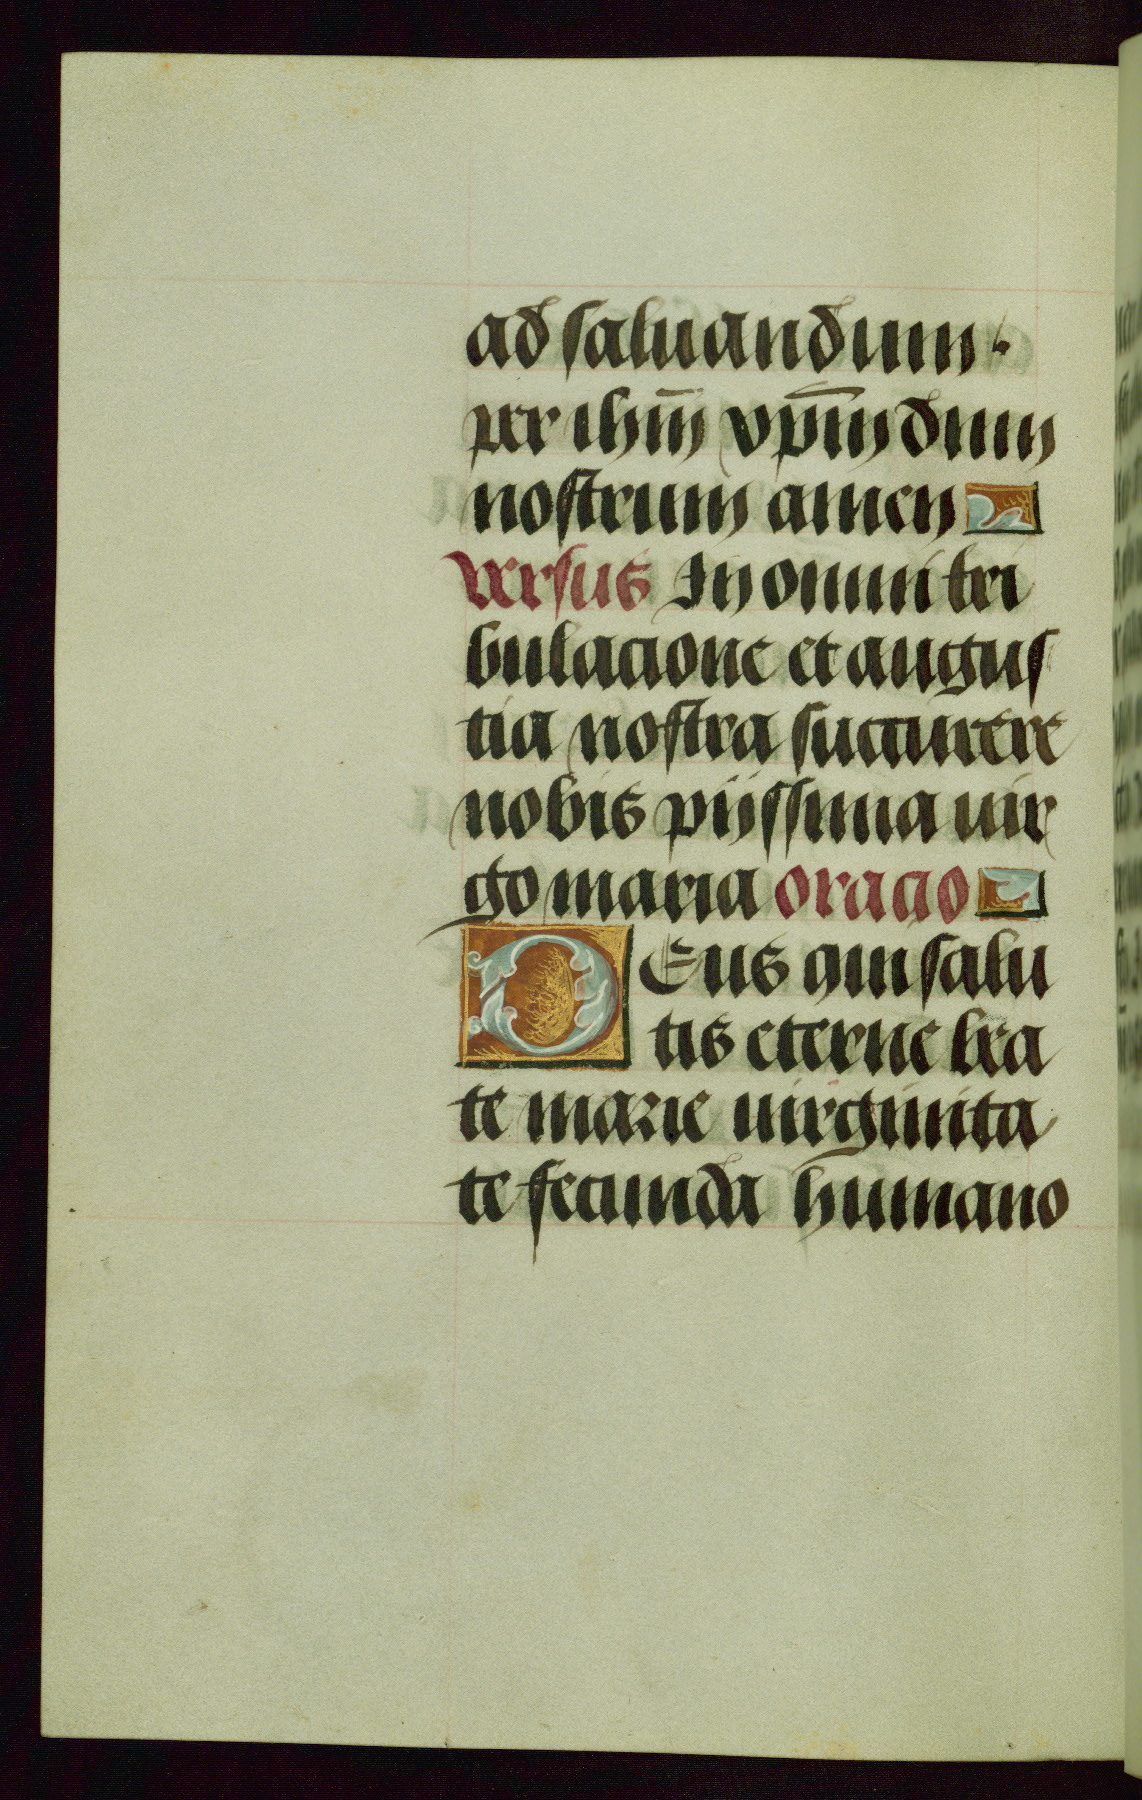 ad saluandum.
per ihm̄ xp̄m dum
nostrum amen
versus In omni tri
bulacione et angus
tia nostra succurere
nobis pijssima uir
go maria oracio
DEus qui salu
tis eterne bea
te marie uirginita
te fecunda humano